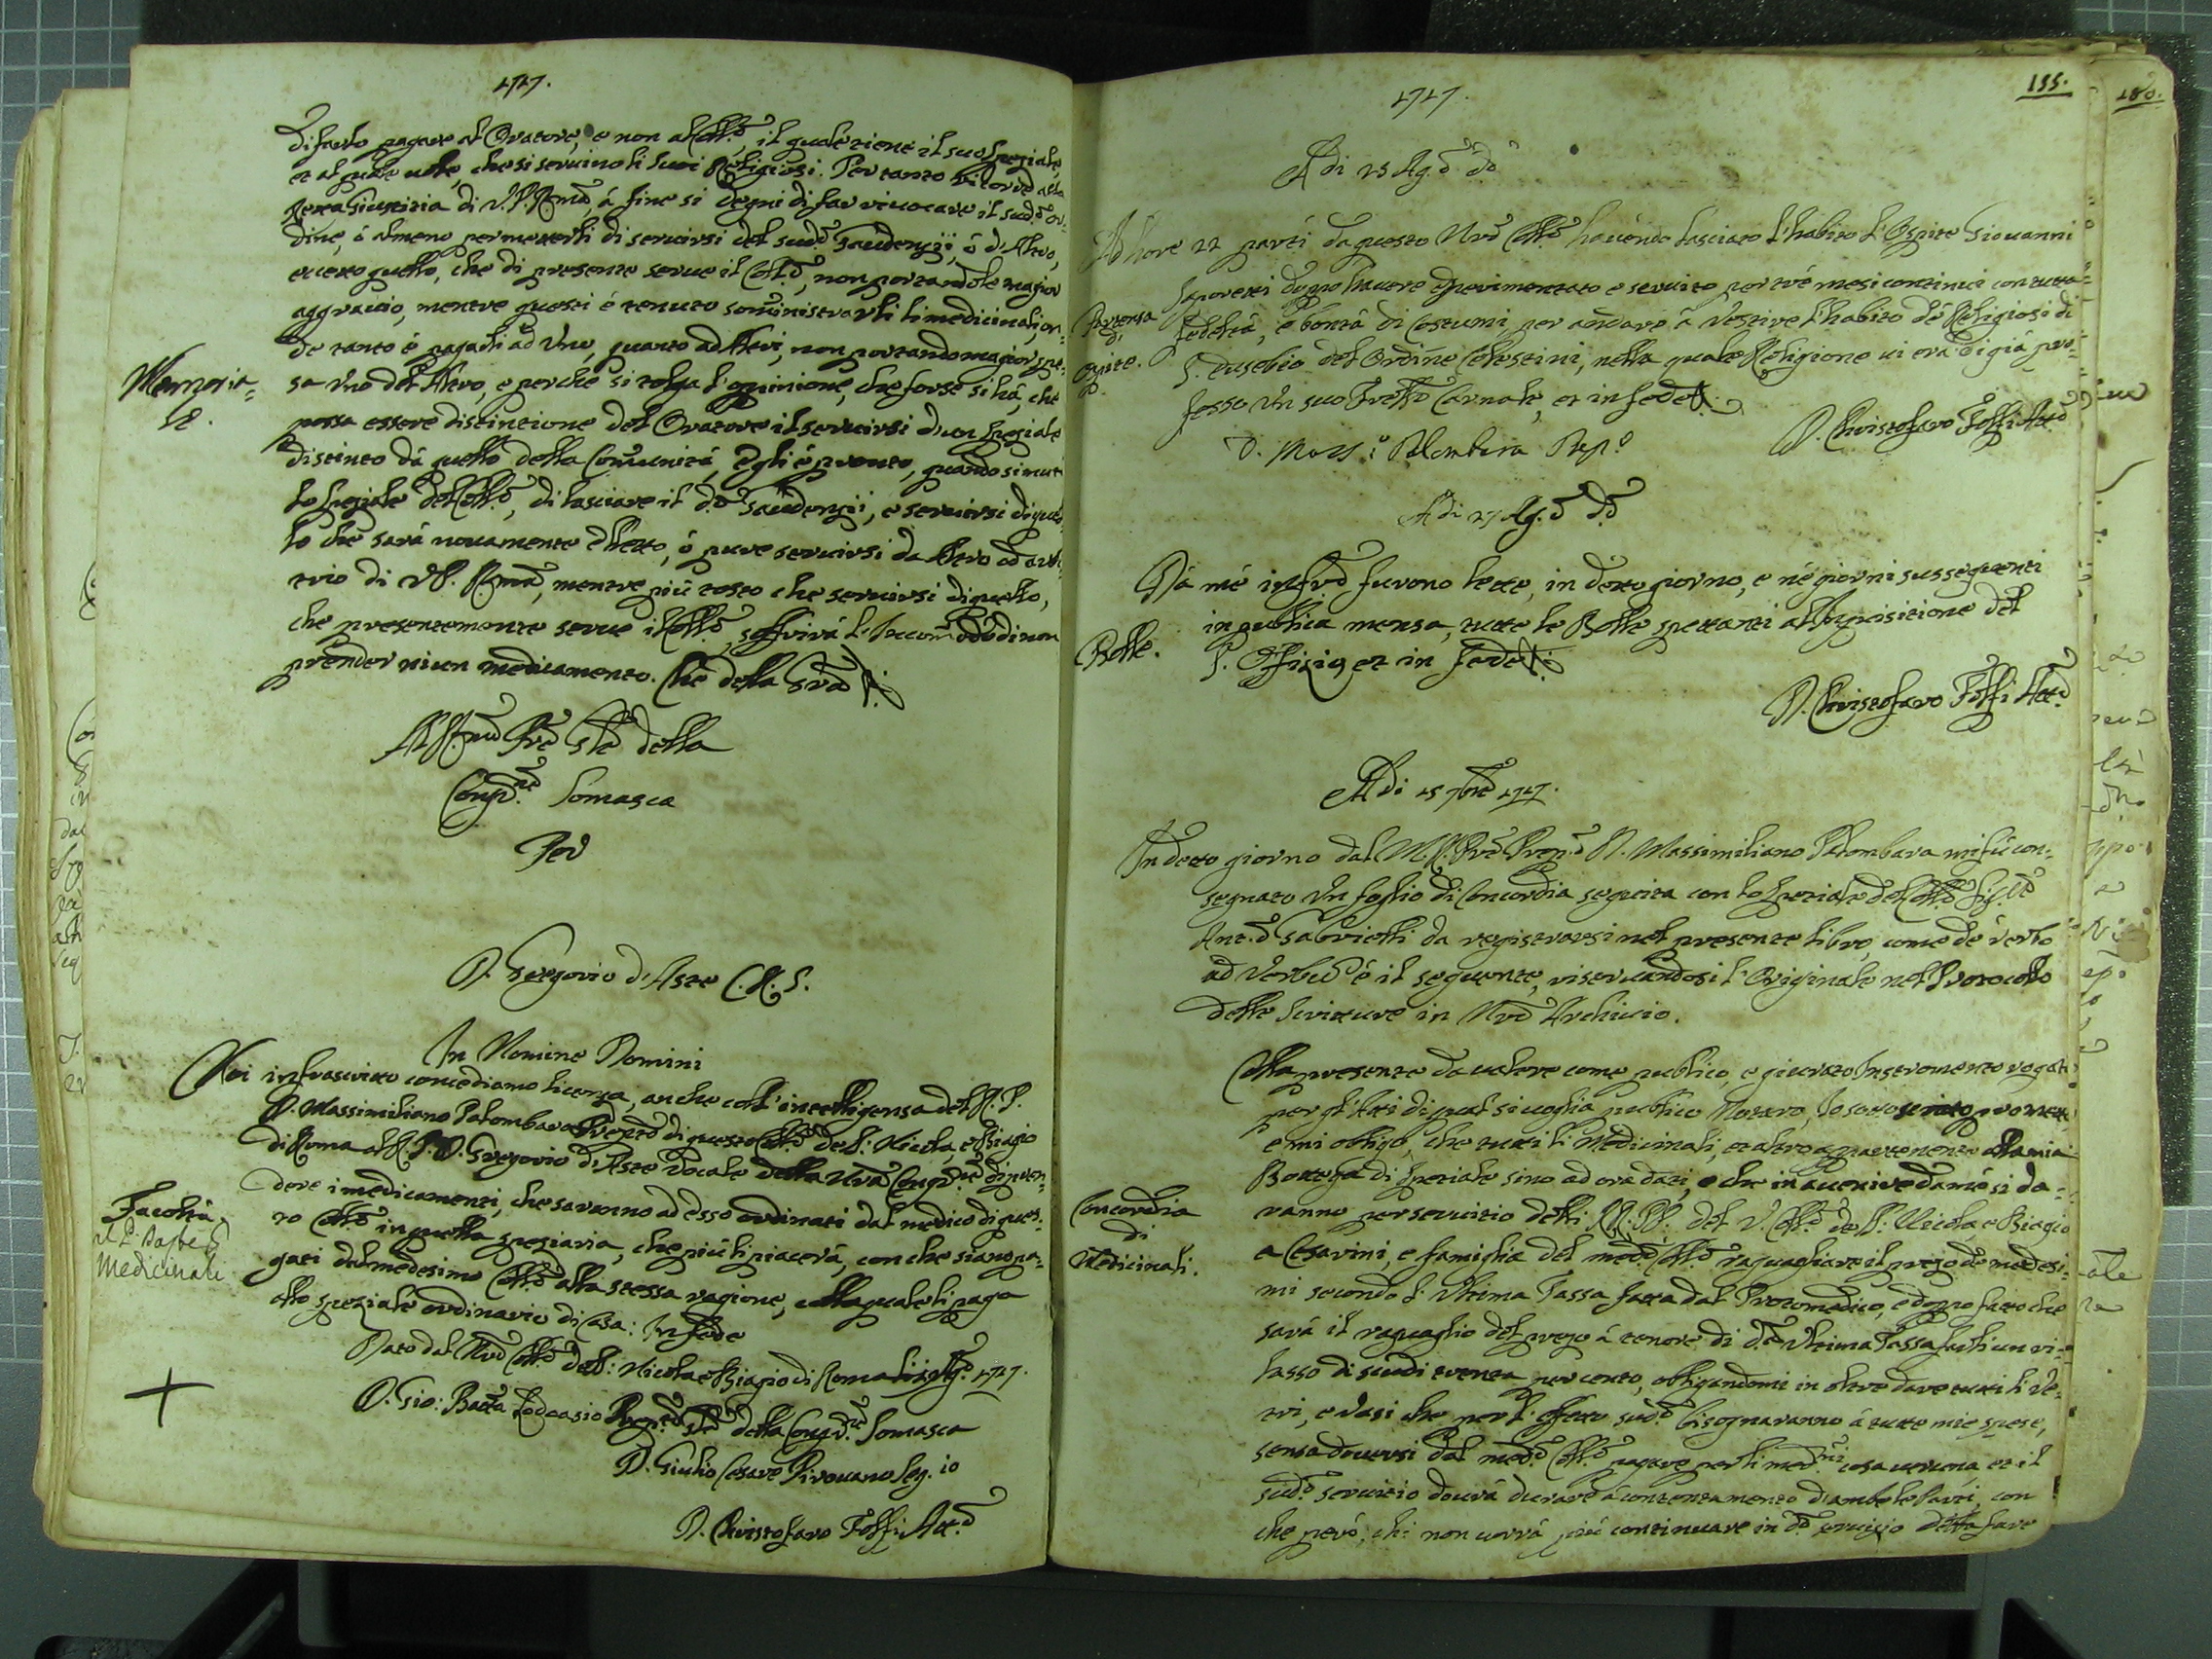 1727.
di farlo pagare al Oratore, e non al Coll.o, il quale tiene il suo speziale,
et al quale vole, che si servino li suoi Religiosi. Per tanto ricorre alla
retta Giustizia di V. P. R.ma, á fine si degni di far rivocare il sud.o or-
dine, ó almeno permetterli di servirsi del sud.o Gaudenzij, ó d'Altro,
eccetto quello, che di presente serve il Coll.o, non portandole magior
aggravio, mentre questi é tenuto somministrarli li medicinali, on-
de tanto é pagarli ad Uno, quanto ad Altri, non portando magior spe-
Memoria-
le.
sa Uno del Altro, e perche si tolga l'opinione, che forse si há, che
possa essere distintione del Oratore il servirsi d'un speziale
distinto dá quello della Comunitá, Egli é pronto, quando si muti
lo speziale del Coll.o, di lasciare il d.o Gaudenzij, e servirsi di quel-
lo che sará novamente eletto, ó pure servirsi da Altro ad arbi-
trio di V. P. R.ma, mentre piú tosto che servirsi di quello,
che presentemente serve il Coll.o, soffrirá l'Incomodo di non
prender niun medicamento. Che della Gra.
Al R.mo Pre Gle della
Cong.ne Somasca
Per
D. Gregorio d'Aste C. R. S.
In Nomine Domini
Noi infrascritto concediamo licenza, anche coll'intelligenza del R. P.
D. Massimiliano Palombara Prep.to di questo Coll.o de SS. Nicola, e Biagio
di Roma al R. P. D. Gregorio d'Aste Vocale della Nrã Cong.ne di pren-
dere i medicamenti, che saranno ad esso ordinati dal medico di ques-
Facoltà
Medicinali
to Coll.o in quella speziaria, che piú li piacerá, con che siano pa-
gati dal medesimo Coll.o alla stessa ragione, colla quale li paga
allo speziale ordinario di Casa: In fede
Dato dal Nrõ Coll.o de SS: Nicola e Biagio di Roma Ag.o 1727.
D. Gio: Batta Lodovasio Prep.to Gle della Cong.ne Somasca
D. Giulio Cesare Pirovano Seg.io
D. Christofaro Folfi Att.o
155.
180.
1727.
A di 25 Ag.o d.o
Ad hore 22 partí da questo Nrõ Coll.o havendo lasciato l'habito l'Ospite Giovanni
Partenza
di
Ospite.
Saporetti doppo havere esperimentato e servito per tré mesi continui con tutta
fedeltá, e bontá di Costumi, per andare á Vestire l'habito dé Religiosi di
S. Eusebio del Ordine Celestini, nella quale Religione vi era di giá pro-
fesso Un suo Frello Carnale, et in fede
D. Christofaro Folfi Att.o
D. Mass:o Palombara Prep.o
A di 27 Ag.o d.o
Dá mé infrõ furono lette, in detto giorno, e né giorni susseguenti
in publica mensa, tutte le Bolle spettanti all'Inquisitione del
Bolle.
S. Offizio, et in fede
D. Christofaro Folfi Att.o
A di 15 7bre 1727.
In detto giorno dal M. R. Pre Prep.o D. Massimiliano Palombara mi fú con-
segnato Un foglio di Concordia seguita con lo Speziale del Coll.o Sig.
Ant.o Gabrielli da registrarsi nel presente libro, come de verbo
ad Verbum é il seguente, riservandosi l'Originale nel Protocollo
delle Scritture in Nrõ Archivio.
Colla presente da valere come publico, e giurato Instromento rogato
per gl'Atti di qual si voglia publico Notaro, Io sottoscritto prometto
e mi obligo, che tutti li Medicinali, et altro appartenente alla mia
Bottega di Speziale sino ad ora dati, e che in avenire da mé si da-
Concordia
di
Medicinali.
ranno per servitio delli RR. PP. del V. Coll.o de SS: Nicola, e Biagio
a Cesarini, e famiglia del med.o Coll.o raguagliare il prezzo de medesi-
mi secondo l'Ultima Tassa fatta dal Protomedico, e doppo fatto che
sará il raguaglio del prezzo á tenore di d.a Ultima Tassa farli un ri-
lasso di scudi trenta per cento, obligandomi in oltre dare tutti li Ve-
tri, e Vasi che per l'effetto sud.o bisognaranno á tutte mie spese,
senza doversi dal med.o Coll.o pagare per li med.mi cosa veruna, et il
sud.o servitio dovrá durare á contentamento d'ambe le Parti, con
che peró, chi non vorrá piú continuare in d.o servizio debba fare